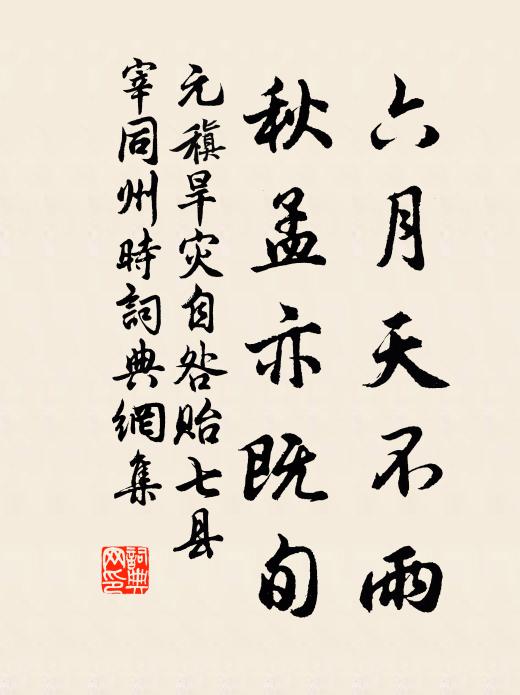 六月天不雨
秋孟亦既旬
元稹旱灾自咎贻七县
宰同州時詞典網集
詞典
网印